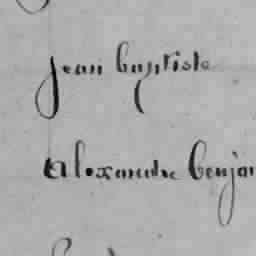 jean baptiste
alexandre benjam